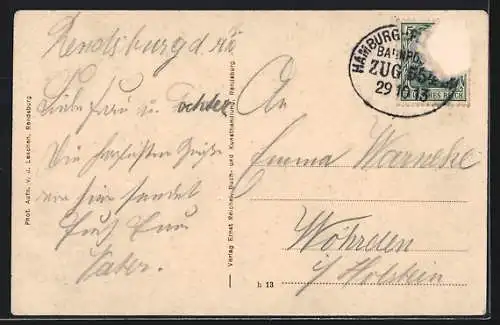 Rendsburg d.
Liebe Frau u. Tochter
Die herzlichsten Grüße
von hier sendet
Euch Euer
Vater.
Phot. Aufn. v. J. Leschen, Rendsburg
Verlag Ernst Reicher, Buch- und Kunsthandlung, Rendsburg.
h 13
HAMBURG
BAHNPO
ZUG
29 10 13
5
An
Emma Warneke
Wöhrden
i/ Holstein